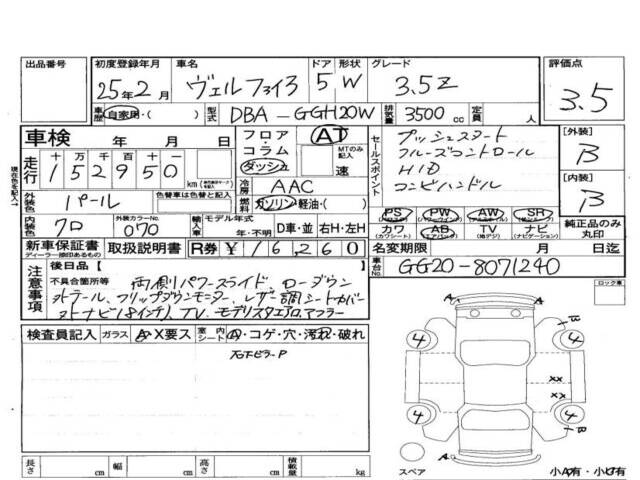 出品番号
初度登録年月
25年2月
車名
ヴェルファイア
ドア 形状
5 W
グレード
3.5Z
評価点
3.5
車歴 自家用・( )
型式 DBA-GGH20W
排気量 3500cc
定員 人
車検 年 月 日
走行 十 万 千 百 十 一
152950 km
外装色 パール
色替車は色替と記入
内装色 クロ
外装カラーNo. 070
フロア
コラム
ダッシュ
AT
MTのみ記入
速
冷房 AAC
燃料 ガソリン・軽油・( )
輸入車 モデル年式
年・不明
D車・並
右H・左H
セールスポイント
プッシュスタート
クルーズコントロール
HID
コンビハンドル
[外装]
B
[内装]
B
PS (パワーステアリング)
PW (パワーウィンドウ)
AW (アルミホイル)
SR (サンルーフ)
カワ (カワシート)
AB (エアバッグ)
TV (地デジ)
ナビ (ナビゲーション)
純正品のみ丸印
新車保証書 取扱説明書
ディーラー捺印あるもの
R券 ¥16,260
名変期限 月 日迄
車台No. GG20-8071240
注意事項
後日品[ ]
不具合箇所等
両側パワースライド ローダウン
外テール、フリップダウンモニター、レザー調シートカバー
外ナビ(8インチ)、TV、モデリスタエアロ、マフラー
ロック車
検査員記入 ガラス A・X要ス 室内シート A・コゲ・穴・汚れ・破れ
石下ピラーP
長さ cm 幅 cm 高さ cm 積載量 kg
A
4
4
4
4
B
B
XX
XX
A
スペア
小A有・小B有